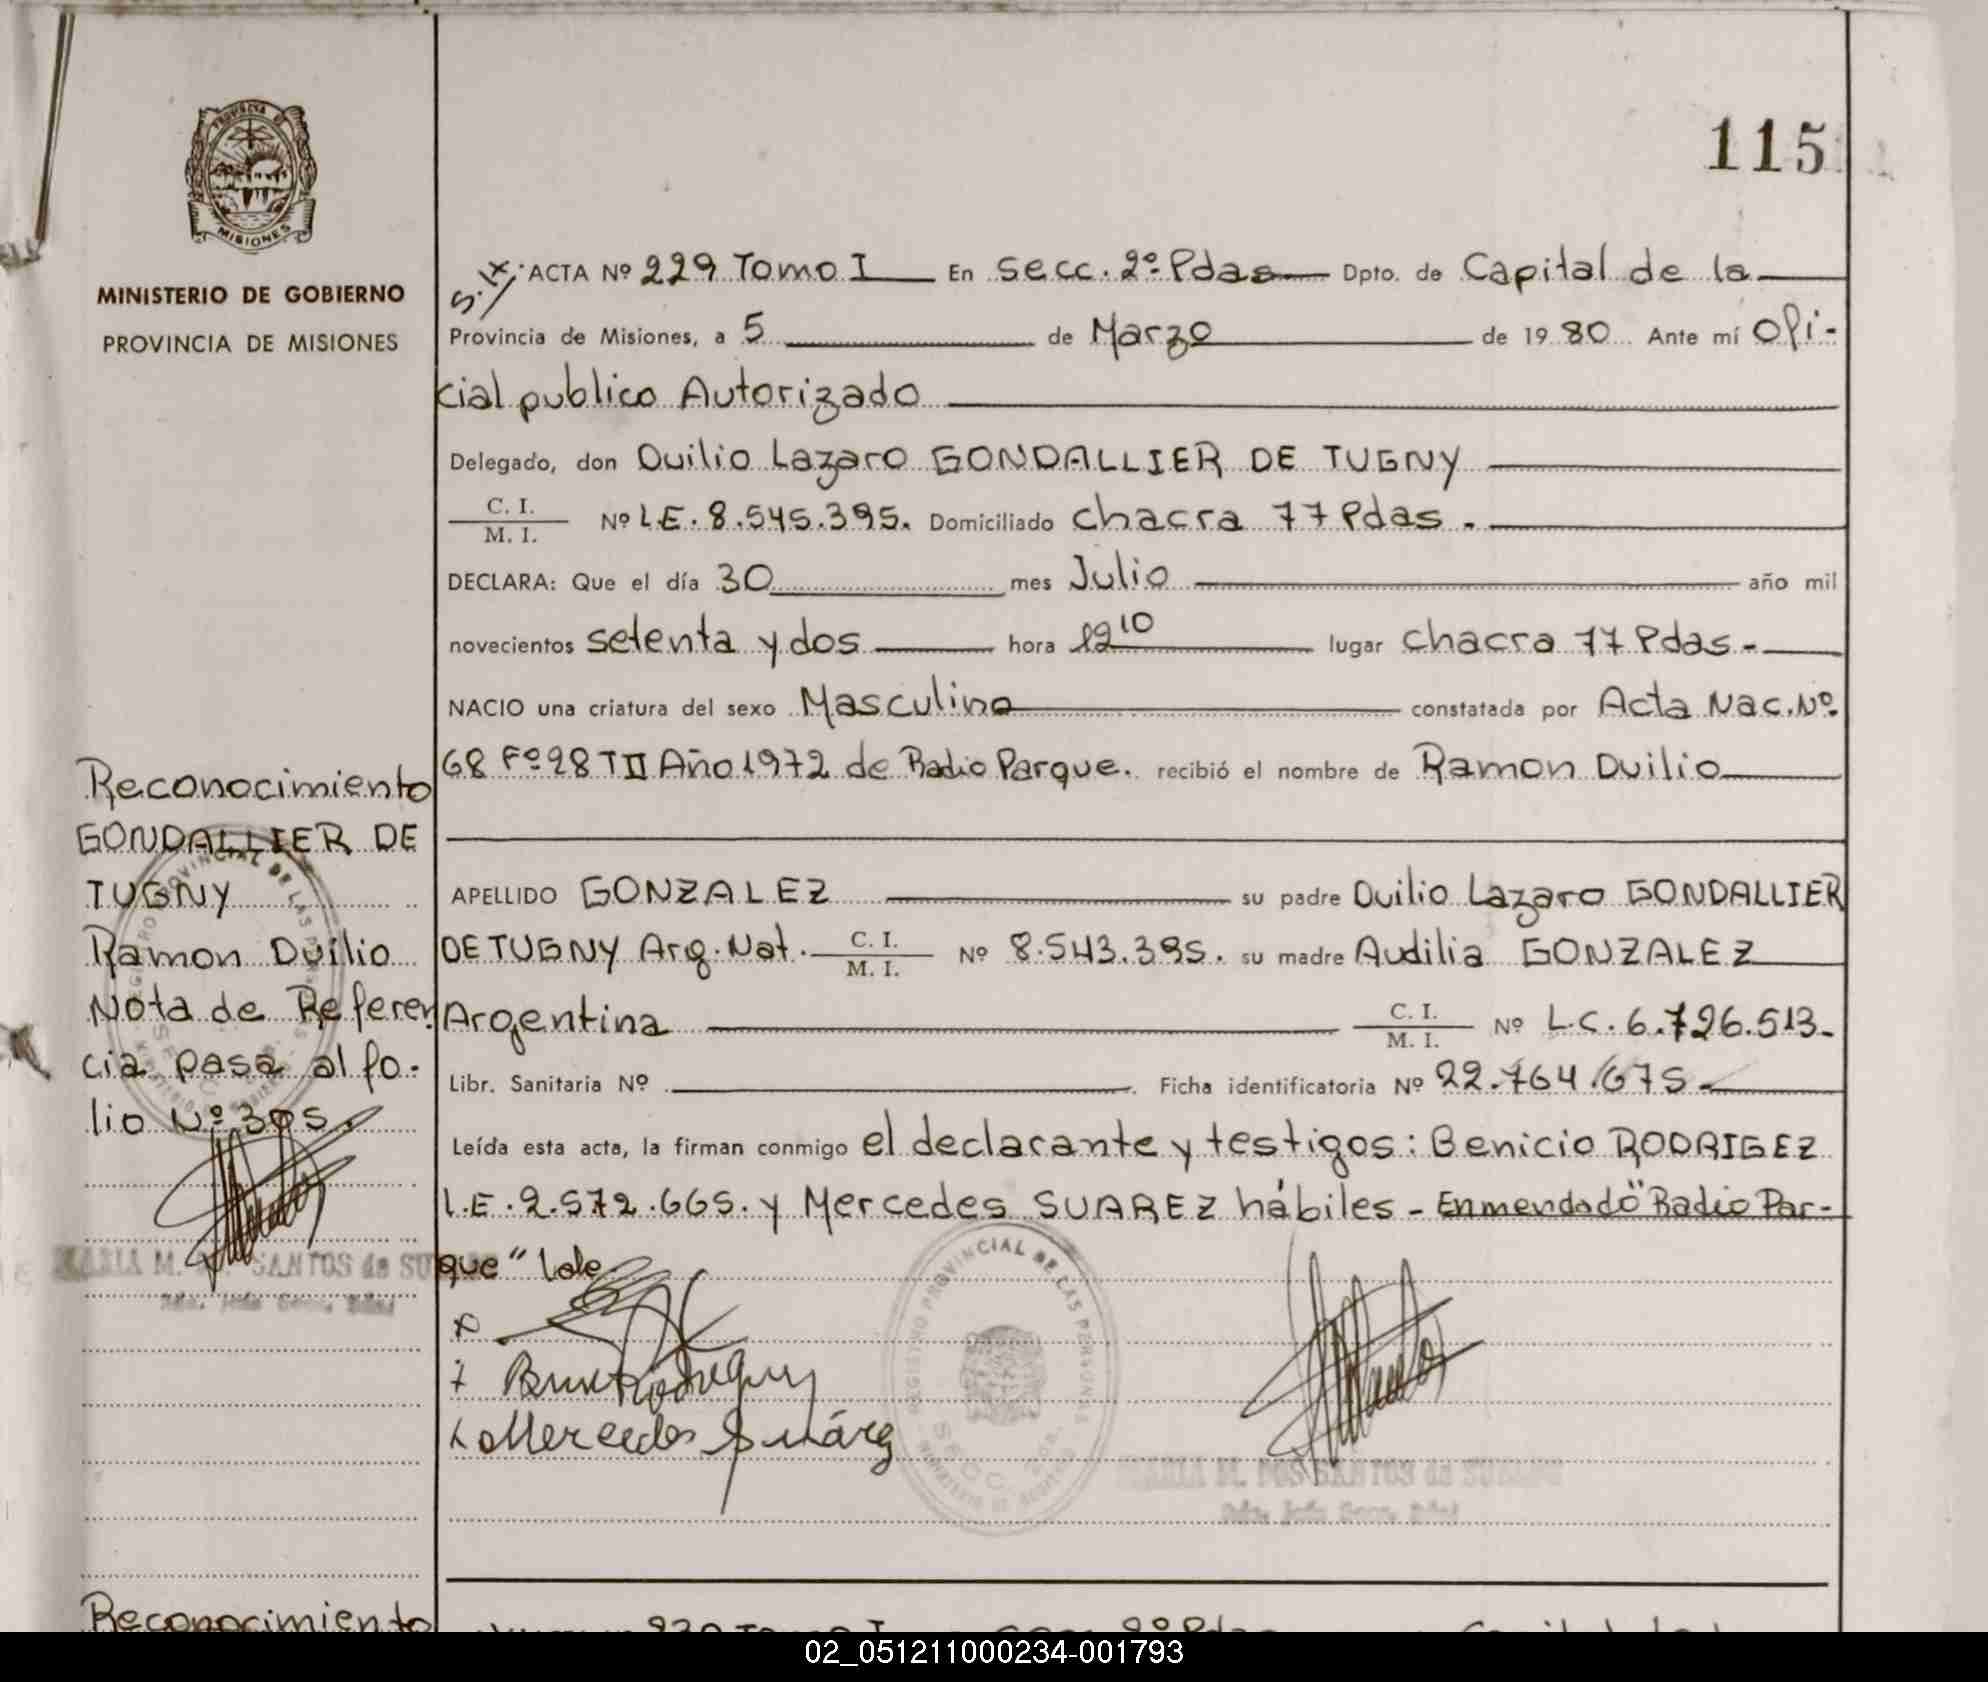 115
PROVINCIA DE
MISIONES
MINISTERIO DE GOBIERNO
PROVINCIA DE MISIONES
ACTA Nº 229 Tomo I En secc. 2º Pdas Dpto. de Capital de la
Provincia de Misiones, a 5 de Marzo de 19 80 Ante mí Ofi-
cial publico Autorizado
Delegado, don Duilio Lazaro GONDALLIER DE TUGNY
C. I.
M. I. Nº L.E. 8.545.395. Domiciliado chacra 77 Pdas.
DECLARA: Que el día 30 mes Julio año mil
novecientos setenta y dos hora 12 10 lugar chacra 77 Pdas.-
NACIO una criatura del sexo Masculino constatada por Acta Nac. Nº
68 Fº 28 T II Año 1972 de Radio Parque. recibió el nombre de Ramon Duilio
APELLIDO GONZALEZ su padre Duilio Lazaro GONDALLIER
DE TUGNY Arg. Nat. C. I.
M. I. Nº 8.543.395. su madre Audilia GONZALEZ
Argentina C. I.
M. I. Nº L.C. 6.726.513-
Libr. Sanitaria Nº . Ficha identificatoria Nº 22.764.675-
Leída esta acta, la firman conmigo el declarante y testigos: Benicio RODRIGEZ
L.E. 2.572.665. y Mercedes SUAREZ hábiles - Enmendado "Radio Par-
que" Vale
Mercedes Suárez
REGISTRO PROVINCIAL DE LAS PERSONAS
MARIA M. DOS SANTOS de
Reconocimiento
GONDALLIER DE
TUGNY
Ramon Duilio
Nota de Referen
cia pasa al fo-
lio Nº 395.
MARIA M. DOS SANTOS de
Reconocimiento
230 Tomo I 2º Pdas
02_051211000234-001793